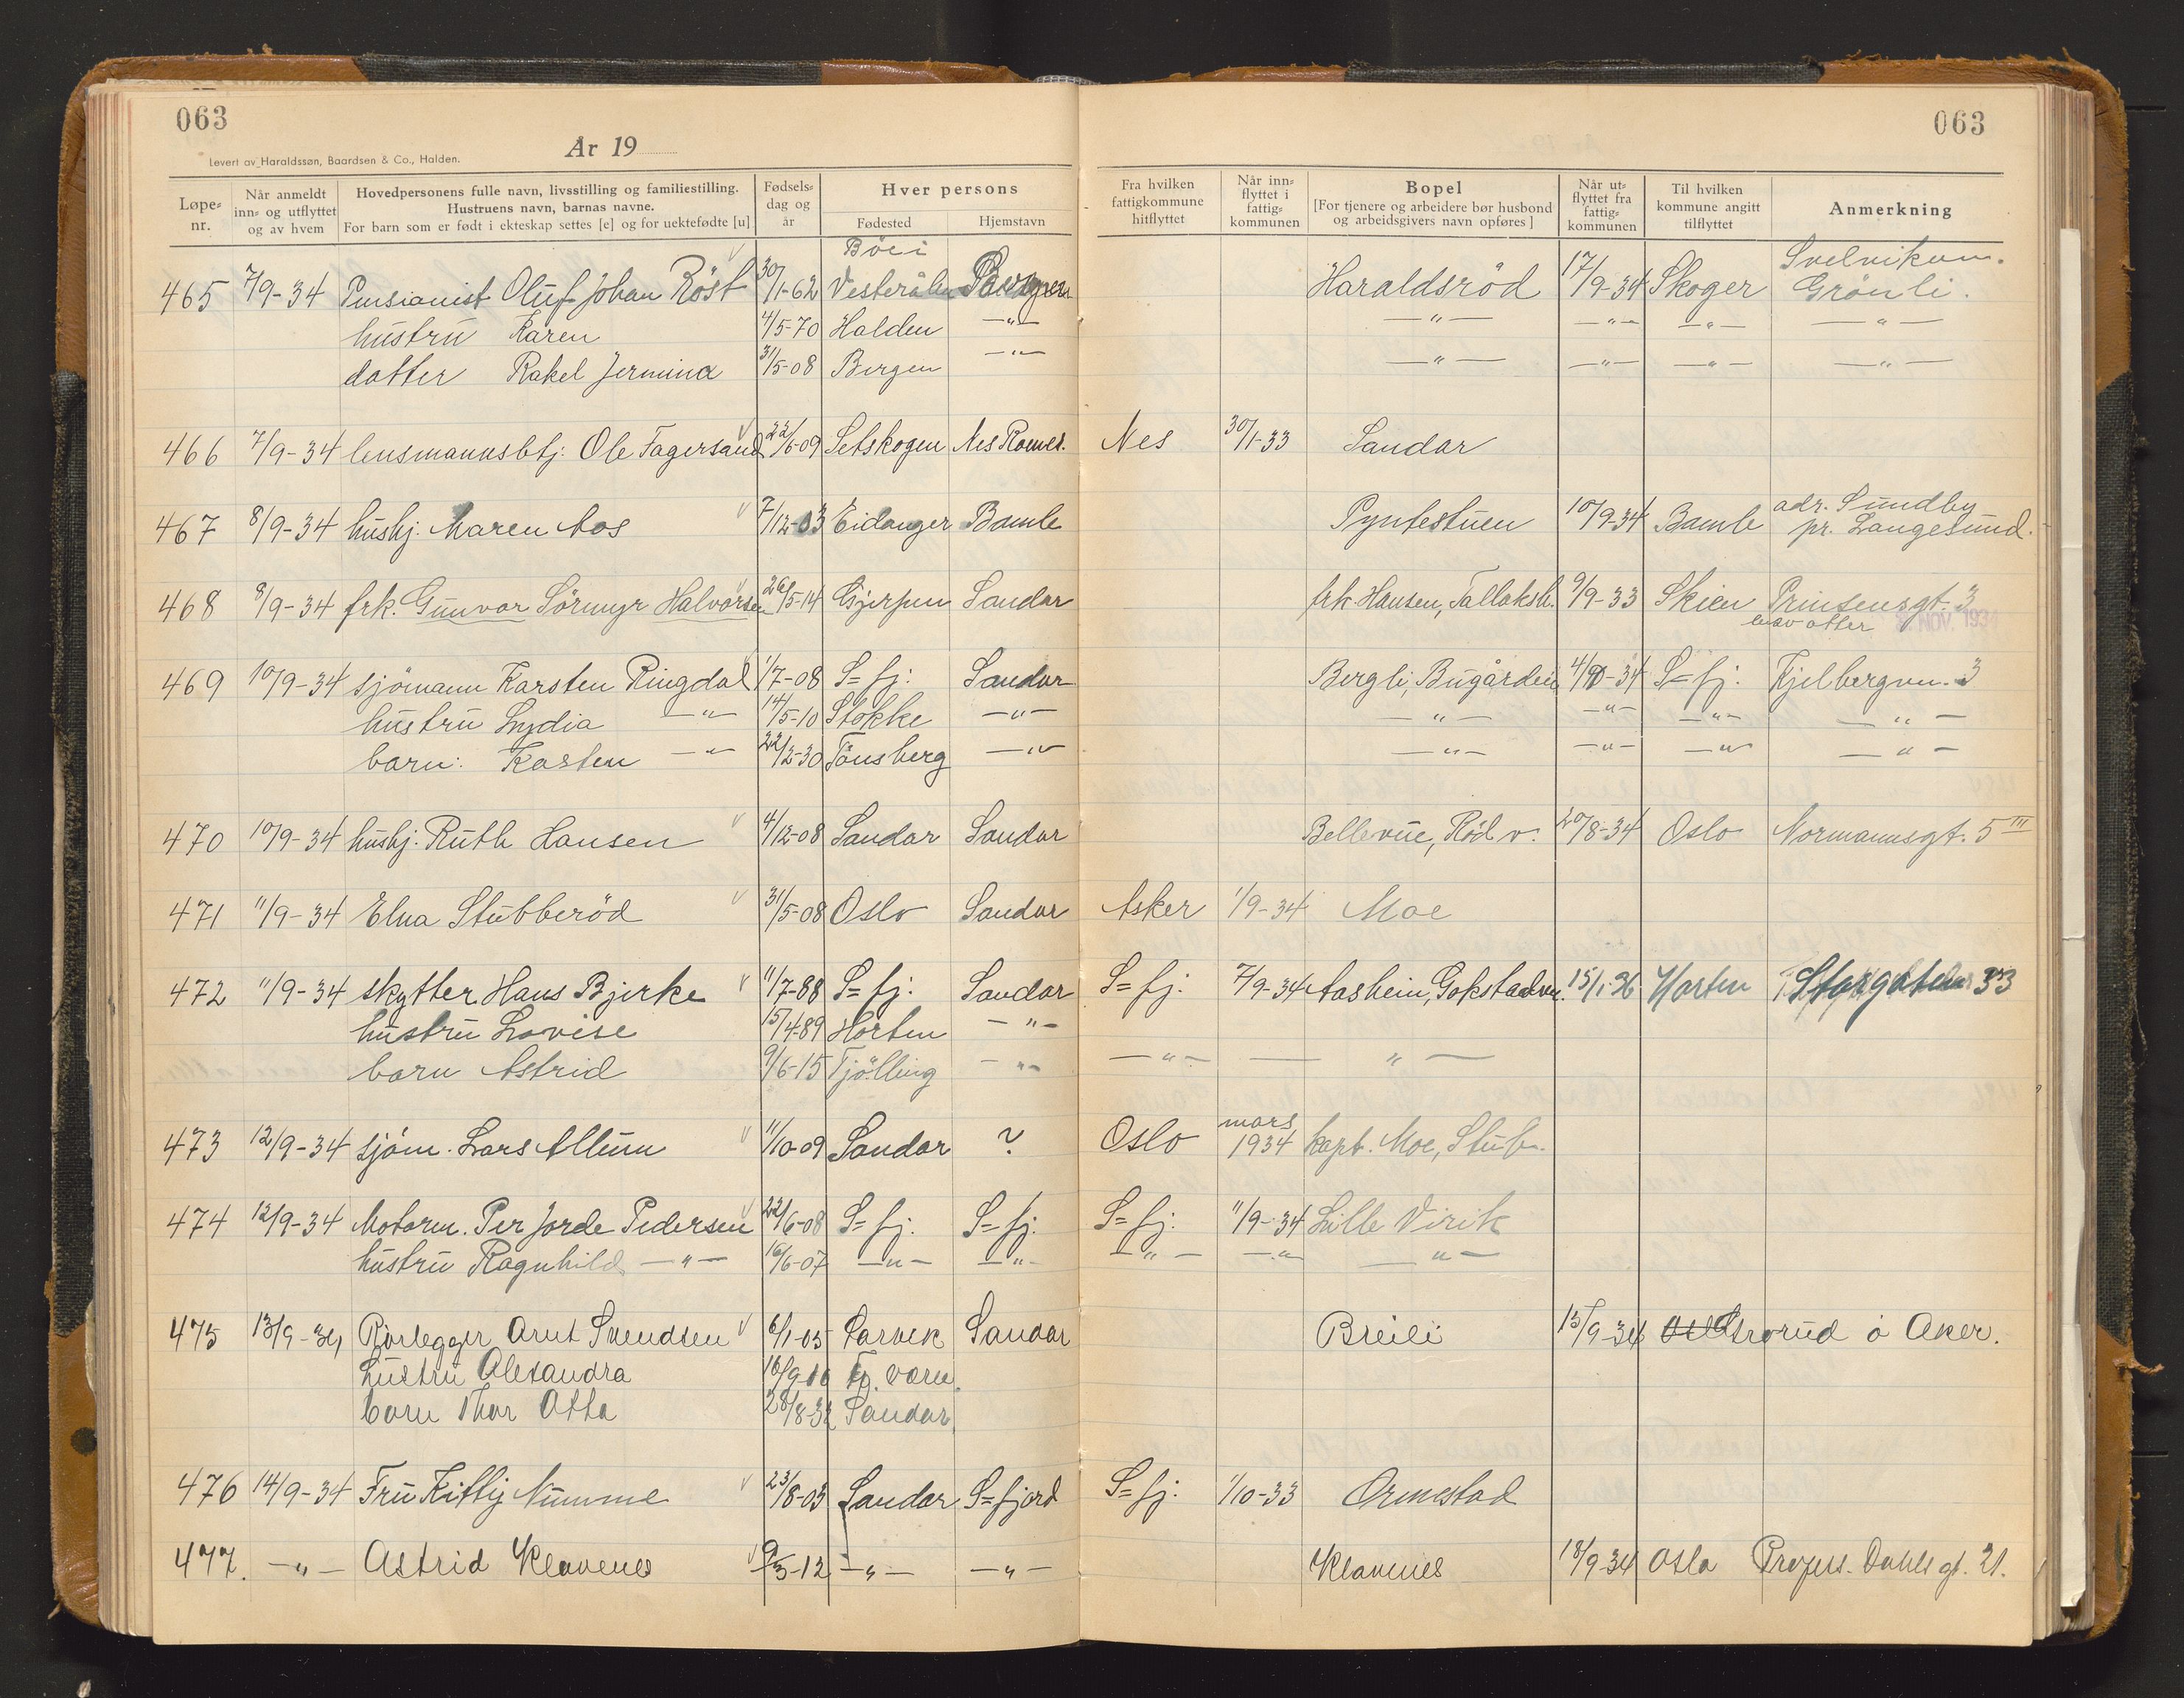 063
År 19
Levert av Haraldssøn, Baardsen & Co., Halden.
063
Løpe-nr. Når anmeldt inn- og utflyttet og av hvem Hovedpersonens fulle navn, livsstilling og familiestilling. Hustruens navn, barnas navne. For barn som er født i ekteskap settes [e] og for uektefødte [u] Fødselsdag og år Hver persons Fødested Hjemstavn Fra hvilken fattigkommune hitflyttet Når innflyttet i fattigkommunen Bopel [For tjenere og arbeidere bør husbond og arbeidsgivers navn opføres] Når utflyttet fra fattigkommunen Til hvilken kommune angitt tilflyttet Anmerkning
465 7/9-34 Pensionist Oluf Johan Röst 30/1-62 Böe i Vesterålen Bergen Haraldsröd 17/9-34 Skoger Svelvikvn. Grönli.
hustru Karen 4/5-70 Halden -"- -"- -"- -"- -"-
datter Rakel Jermina 31/5-08 Bergen -"- -"- -"- -"- -"-
466 7/9-34 lensmannsbtj. Ole Fagersand 22/6-09 Setskogen Nes Romer. Nes 30/1-33 Sandar
467 8/9-34 hushj. Maren Aos 7/12-03 Eidanger Bamle Pyntestuen 10/9-34 Bamle adr. Sundby pr. Langesund.
468 8/9-34 frk. Gunvor Sörmyr Halvorsen 26/5-14 Gjerpen Sandar frk. Hansen, Tallaksh. 9/9-33 Skien Prinsensgt. 3
NOV. 1934
469 10/9-34 sjömann Karsten Ringdal 1/7-08 S=fj: Sandar Bergli, Bugården 4/9-34 S=fj. Kjelbergvn. 3
hustru Lydia -"- 14/5-10 Stokke -"- -"- -"- -"- -"-
barn: Karsten -"- 22/2-30 Tönsberg -"- -"- -"- -"- -"-
470 10/9-34 hushj. Ruth Hansen 4/12-08 Sandar Sandar Bellevue, Röd v. 20/8-34 Oslo Normannsgt. 5 III
471 11/9-34 Elna Stubberöd 31/5-08 Oslo Sandar Asker 1/9-34 Moe
472 11/9-34 skytter Hans Bjerke 11/7-88 S=fj: Sandar S=fj. 7/9-34 Aasheim, Gokstadvn. 15/1-36 Horten Storgaten 33
hustru Lovise 15/4-89 Horten -"-
barn Astrid 9/6-15 Tjölling -"- -"- -"-
473 12/9-34 sjöm. Lars Allum 11/10-09 Sandar ? Oslo mars 1934 kapt. Moe, Stub.
474 12/9-34 Motorm. Per Jorde Pedersen 22/6-08 S=fj. S=fj. S=fj. 11/9-34 Lille Virik
hustru Ragnhild -"- 16/6-07 -"- -"- -"- -"- -"-
475 13/9-34 Rörlegger Arnt Svendsen 6/1-05 Larvik Sandar Breili 15/9-34 Grorud ö Aker.
hustru Alexandra 16/9-06
barn Thor Otto 28/8-32 Sandar
476 14/9-34 Fru Kitty Numme 23/8-03 Sandar S=fjord S=fj: 1/10-33 Ormestad
477. -"- Astrid Klavenes 9/3-12 -"- -"- Klavenes 18/9-34 Oslo Profess. Dahls gt. 21.